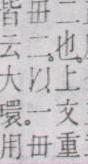 二也上文重
毌二以一毌
皆云大環用